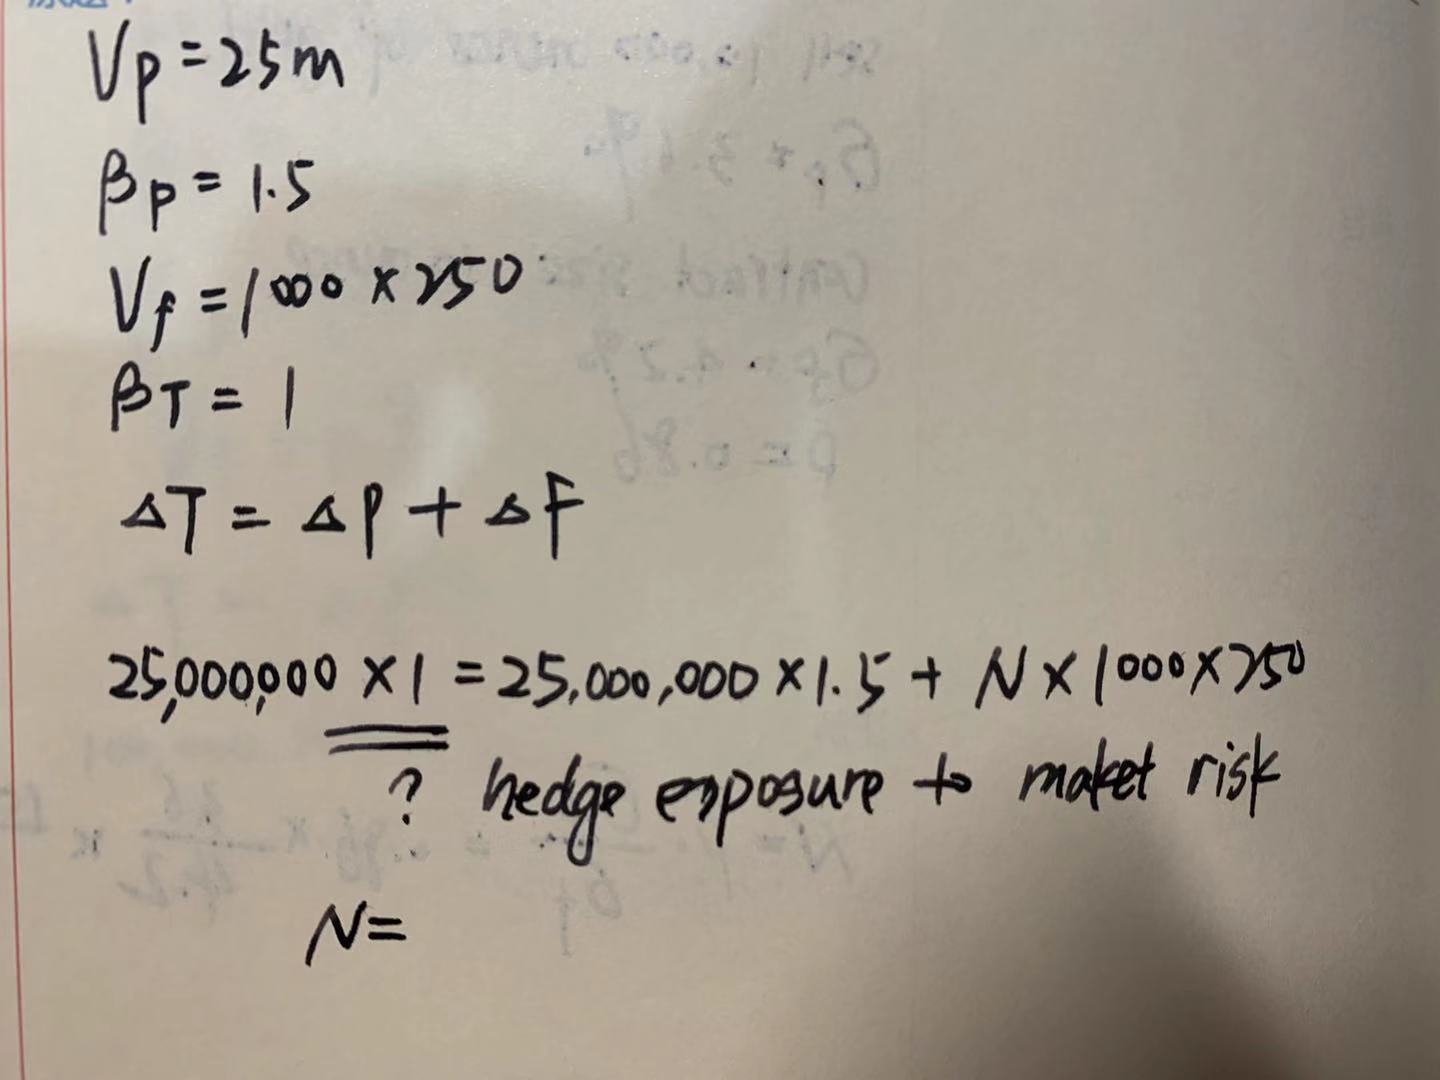 Vp = 25m
βp = 1.5
Vf = 1000 × 250
βT = 1
ΔT = ΔP + ΔF
25,000,000 × 1 = 25,000,000 × 1.5 + N × 1000 × 250
? hedge exposure to maket risk
N =